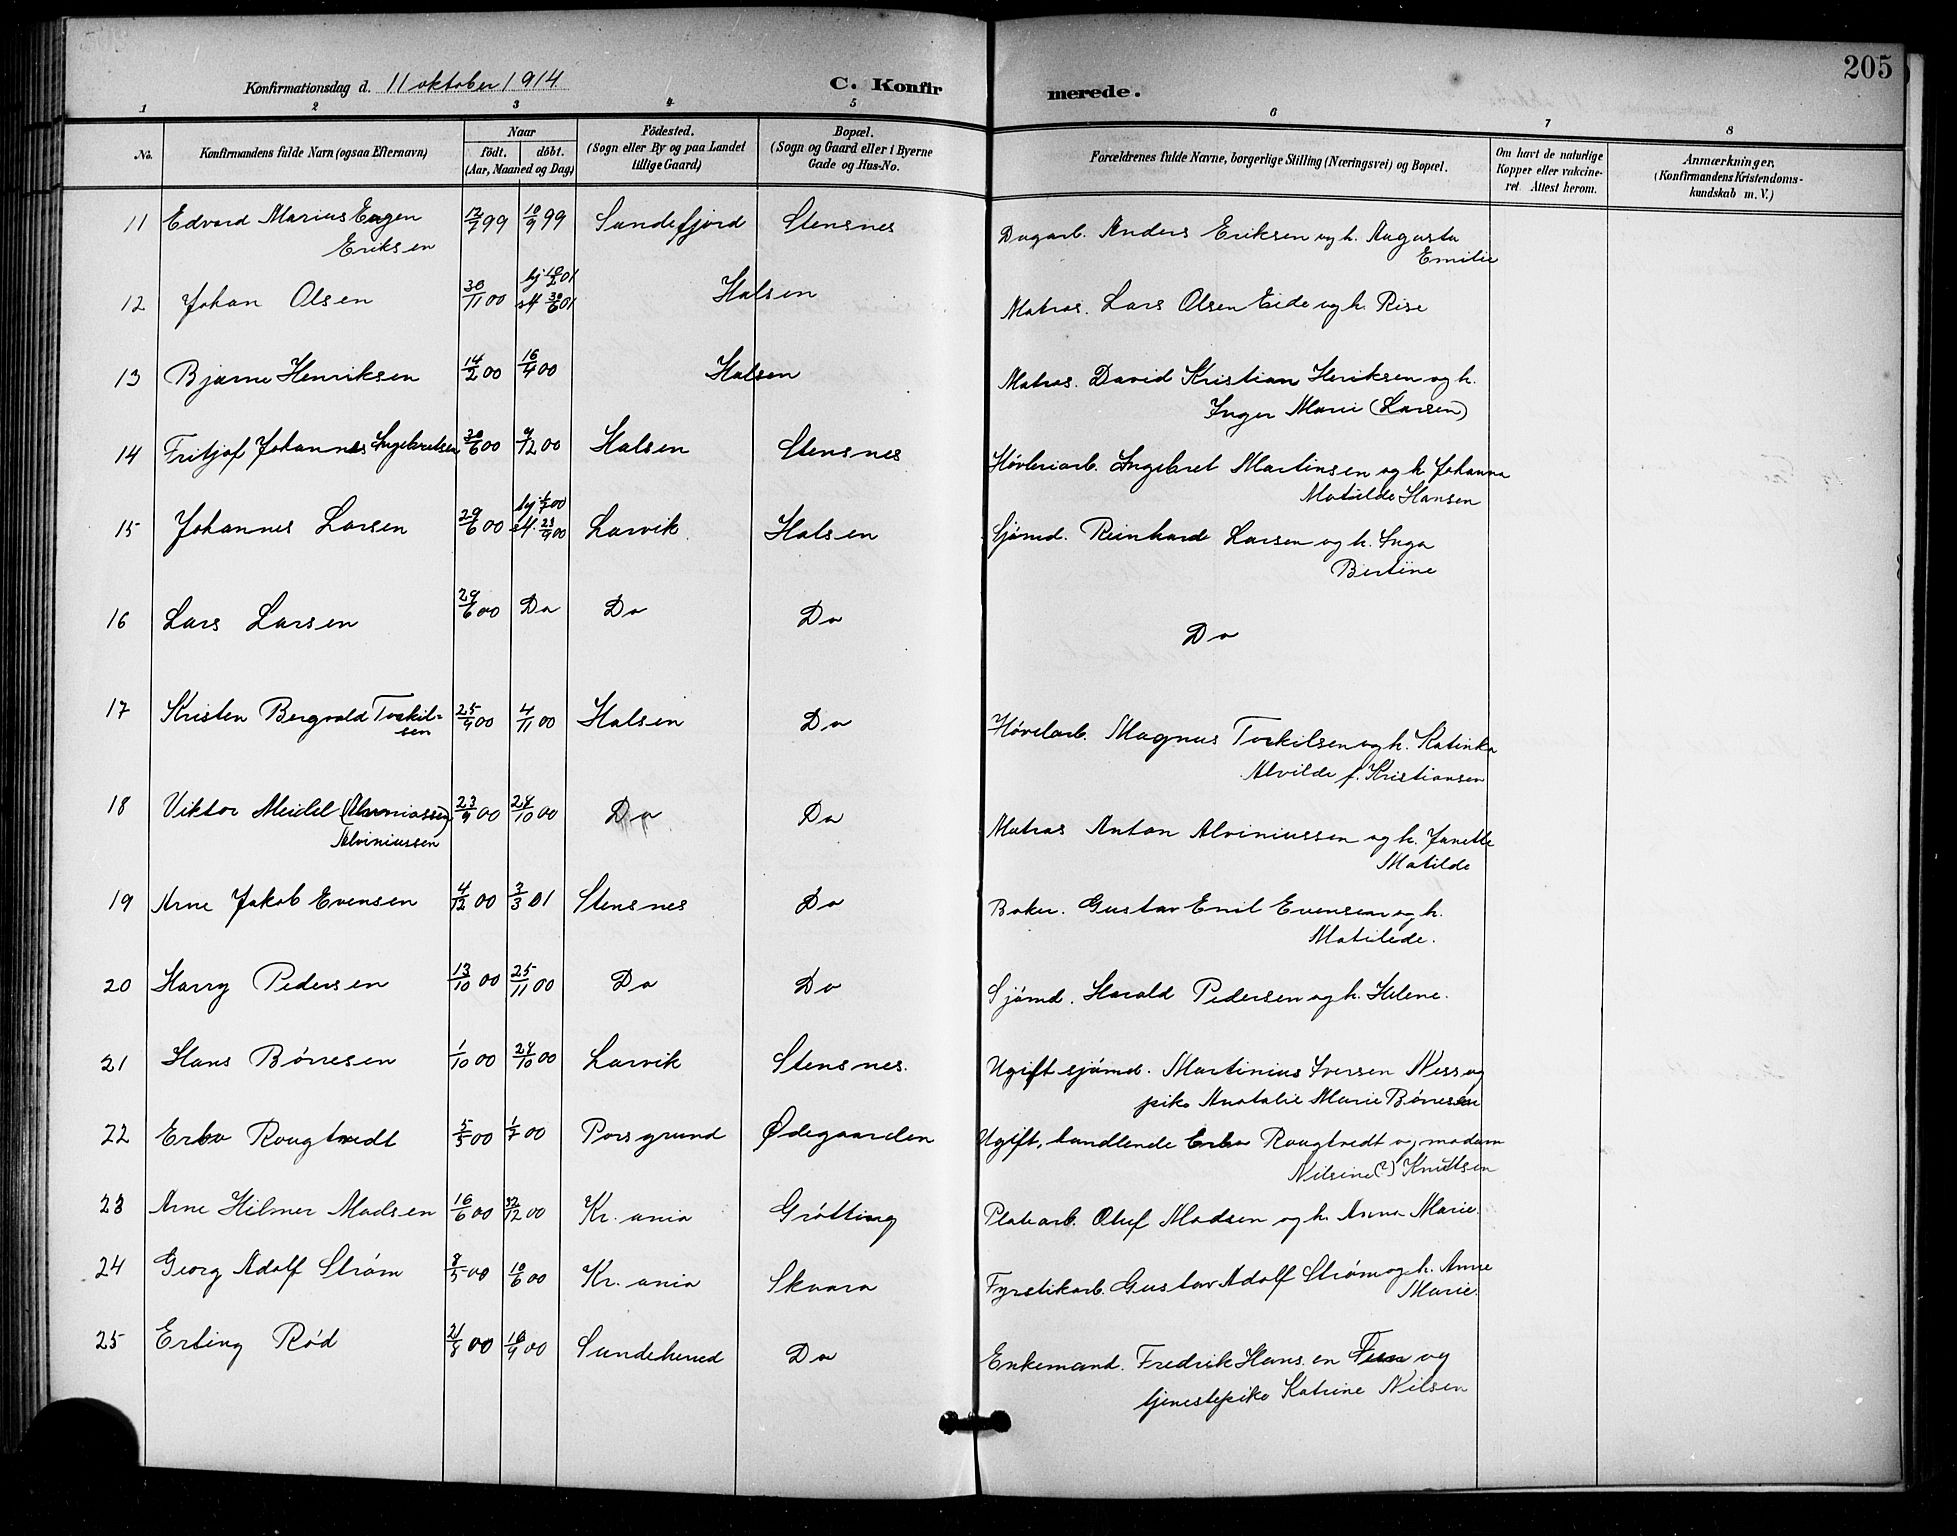 205
Konfirmationsdag d. 11 oktober 1914.
C. Konfirmerede.
1 2 3 4 5 6 7 8
No.
Konfirmandens fulde Navn (ogsaa Efternavn)
Naar
født. døbt.
(Aar, Maaned og Dag)
Fødested.
(Sogn eller By og paa Landet
tillige Gaard)
Bopæl.
(Sogn og Gaard eller i Byerne
Gade og Hus-No.
Forældrenes fulde Navne, borgerlige Stilling (Næringsvei) og Bopæl.
Om havt de naturlige
Kopper eller vakcine-
ret. Attest herom.
Anmærkninger,
(Konfirmandens Kristendoms-
kundskab m. V.)
11 Edvard Marius Eugen 12/7 99 10/9 99 Sandefjord Stensnes Dagarb. Anders Eriksen og h. Augusta
Eriksen Emilie
12 Johan Olsen 30/11 00 hj 10/2 01 Halsen Matros. Lars Olsen Eide og h. Rise
st 30/6 01
13 Bjarne Henriksen 14/2 00 16/4 00 Halsen Matros. David Kristian Henriksen og h.
Inger Marie (Larsen)
14 Fritjof Johannes Ingebretsen 30/6 00 9/12 00 Halsen Stensnes Høvleriarb. Ingebret Martinsen og h. Johanna
Matilde Hansen
15 Johannes Larsen 29/6 00 hj 1/7 00 Larvik. Halsen Sjømd. Reinhard Larsen og h. Inga
st. 23/9 00 Bertine
16 Lars Larsen 29/6 00 Do Do Do Do
17 Kristen Bergvald Torkil- 25/9 00 4/11 00 Halsen Do Høvelarb. Magnus Torkilsen og h. Katinka
sen Alvilde f. Kristiansen
18 Viktor Meidel 23/9 00 28/10 00 Do Do Matros Anton Alviniussen og h. Janette
Alviniussen Matilde
19 Arne Jakob Evensen 4/12 00 3/3 01 Stensnes Do Baker. Gustav Emil Evensen og h.
Matilde.
20 Harry Pedersen 13/10 00 25/11 00 Do Do Sjømd. Harald Pedersen og h. Helene.
21 Hans Børresen 1/10 00 28/10 00 Larvik Stensnes. Ugift sjømd. Martinius Iversen Ness og
pike Anatalie Marie Børresen
22 Erbo Rougtvedt 5/5 00 1/7 00 Porsgrund Ødegaarden Ugift, handlende Erbo Rougtvedt og madam
Nilsine (?) Knutsen
23 Arne Hilmer Madsen 16/6 00 12 00 Kr. ania Grøtting Platearb. Oluf Madsen og h. Anna Marie.
24 Georg Adolf Strøm 8/5 00 10/6 00 Kr. ania Skaara Fyrstikarb. Gustav Adolf Strøm og h. Anne
Marie.
25 Erling Rød 21/8 00 16/9 00 Sandeherred Do Enkemand. Fredrik Hansen og
tjenestepike Katrine Nilsen